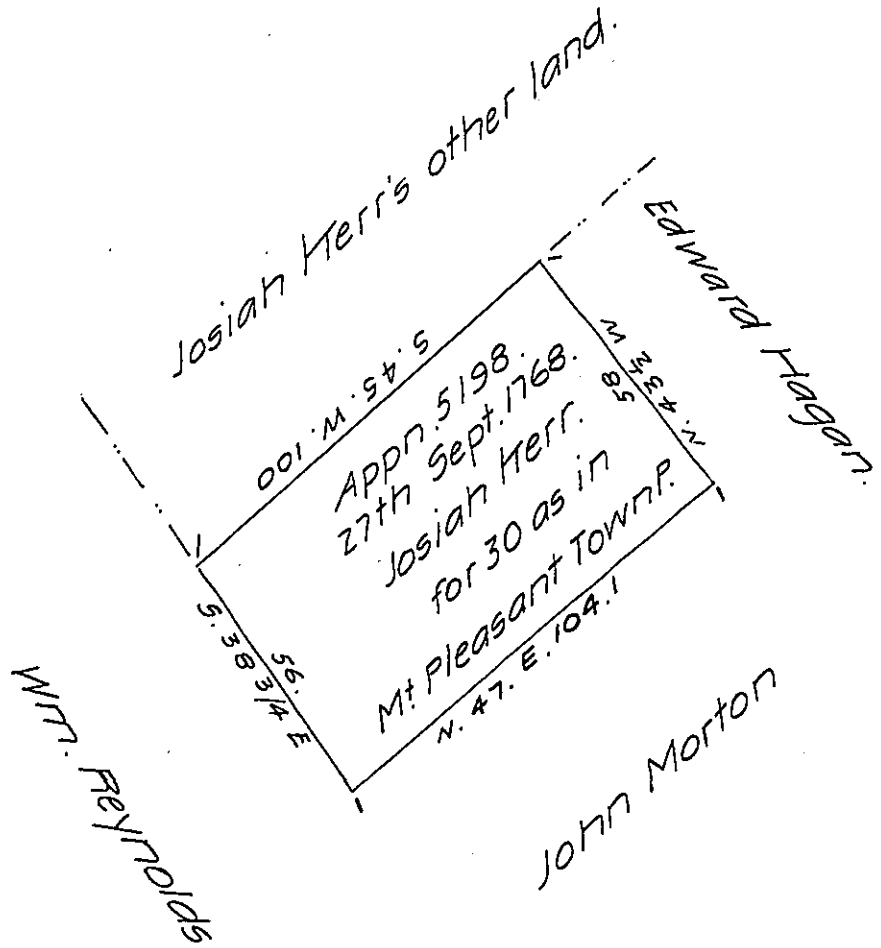 Josiah Kerr's other land.
Edward Hagan.
S. 45. W. 100
N. 43 1/2 W
58
Appn. 5198.
27th Sept. 1768.
Josiah Kerr.
for 30 as in
Mt Pleasant Townp.
S. 38 3/4 E
56.
N. 47. E. 104.1
Wm. Reynolds
John Morton